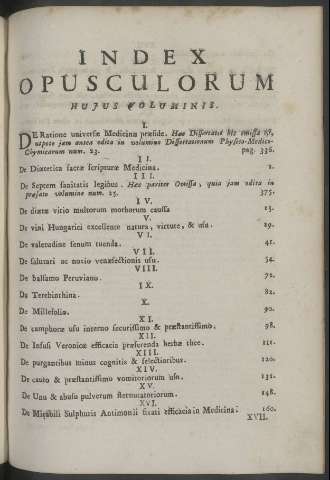 INDEX
OPUSCULORUM
HUJUS VOLUMINIS.
I.
DE Ratione universæ Medicinæ præside. Hæc Dissertatio hic omissa est,
utpote jam antea edita in volumine Dissertationum Physico-Medico-
Chymicarum num. 23. pag. 336.
II.
De Diætetica sacræ scripturæ Medicina. 1.
III.
De Septem sanitatis legibus. Hæc pariter Omissa, quia jam edita in
præfato volumine num. 25. 375.
IV.
De diætæ vitio multorum morborum caussa 15.
V.
De vini Hungarici excellente natura, virtute, & usu. 29.
VI.
De valetudine senum tuenda. 41.
VII.
De salutari ac noxio venæsectionis usu. 54.
VIII.
De balsamo Peruviano. 72.
IX.
De Terebinthina. 82.
X.
De Millefolio. 90.
XI.
De camphoræ usu interno securissimo & præstantissimo. 98.
XII.
De Infusi Veronicæ efficacia præferenda herbæ thee. 111.
XIII.
De purgantibus minus cognitis & selectioribus. 120.
XIV.
De cauto & præstantissimo vomitoriorum usu. 131.
XV.
De Usu & abusu pulverum sternutatoriorum. 148.
XVI.
De Mirabili Sulphuris Antimonii fixati efficacia in Medicina. 160.
XVII.